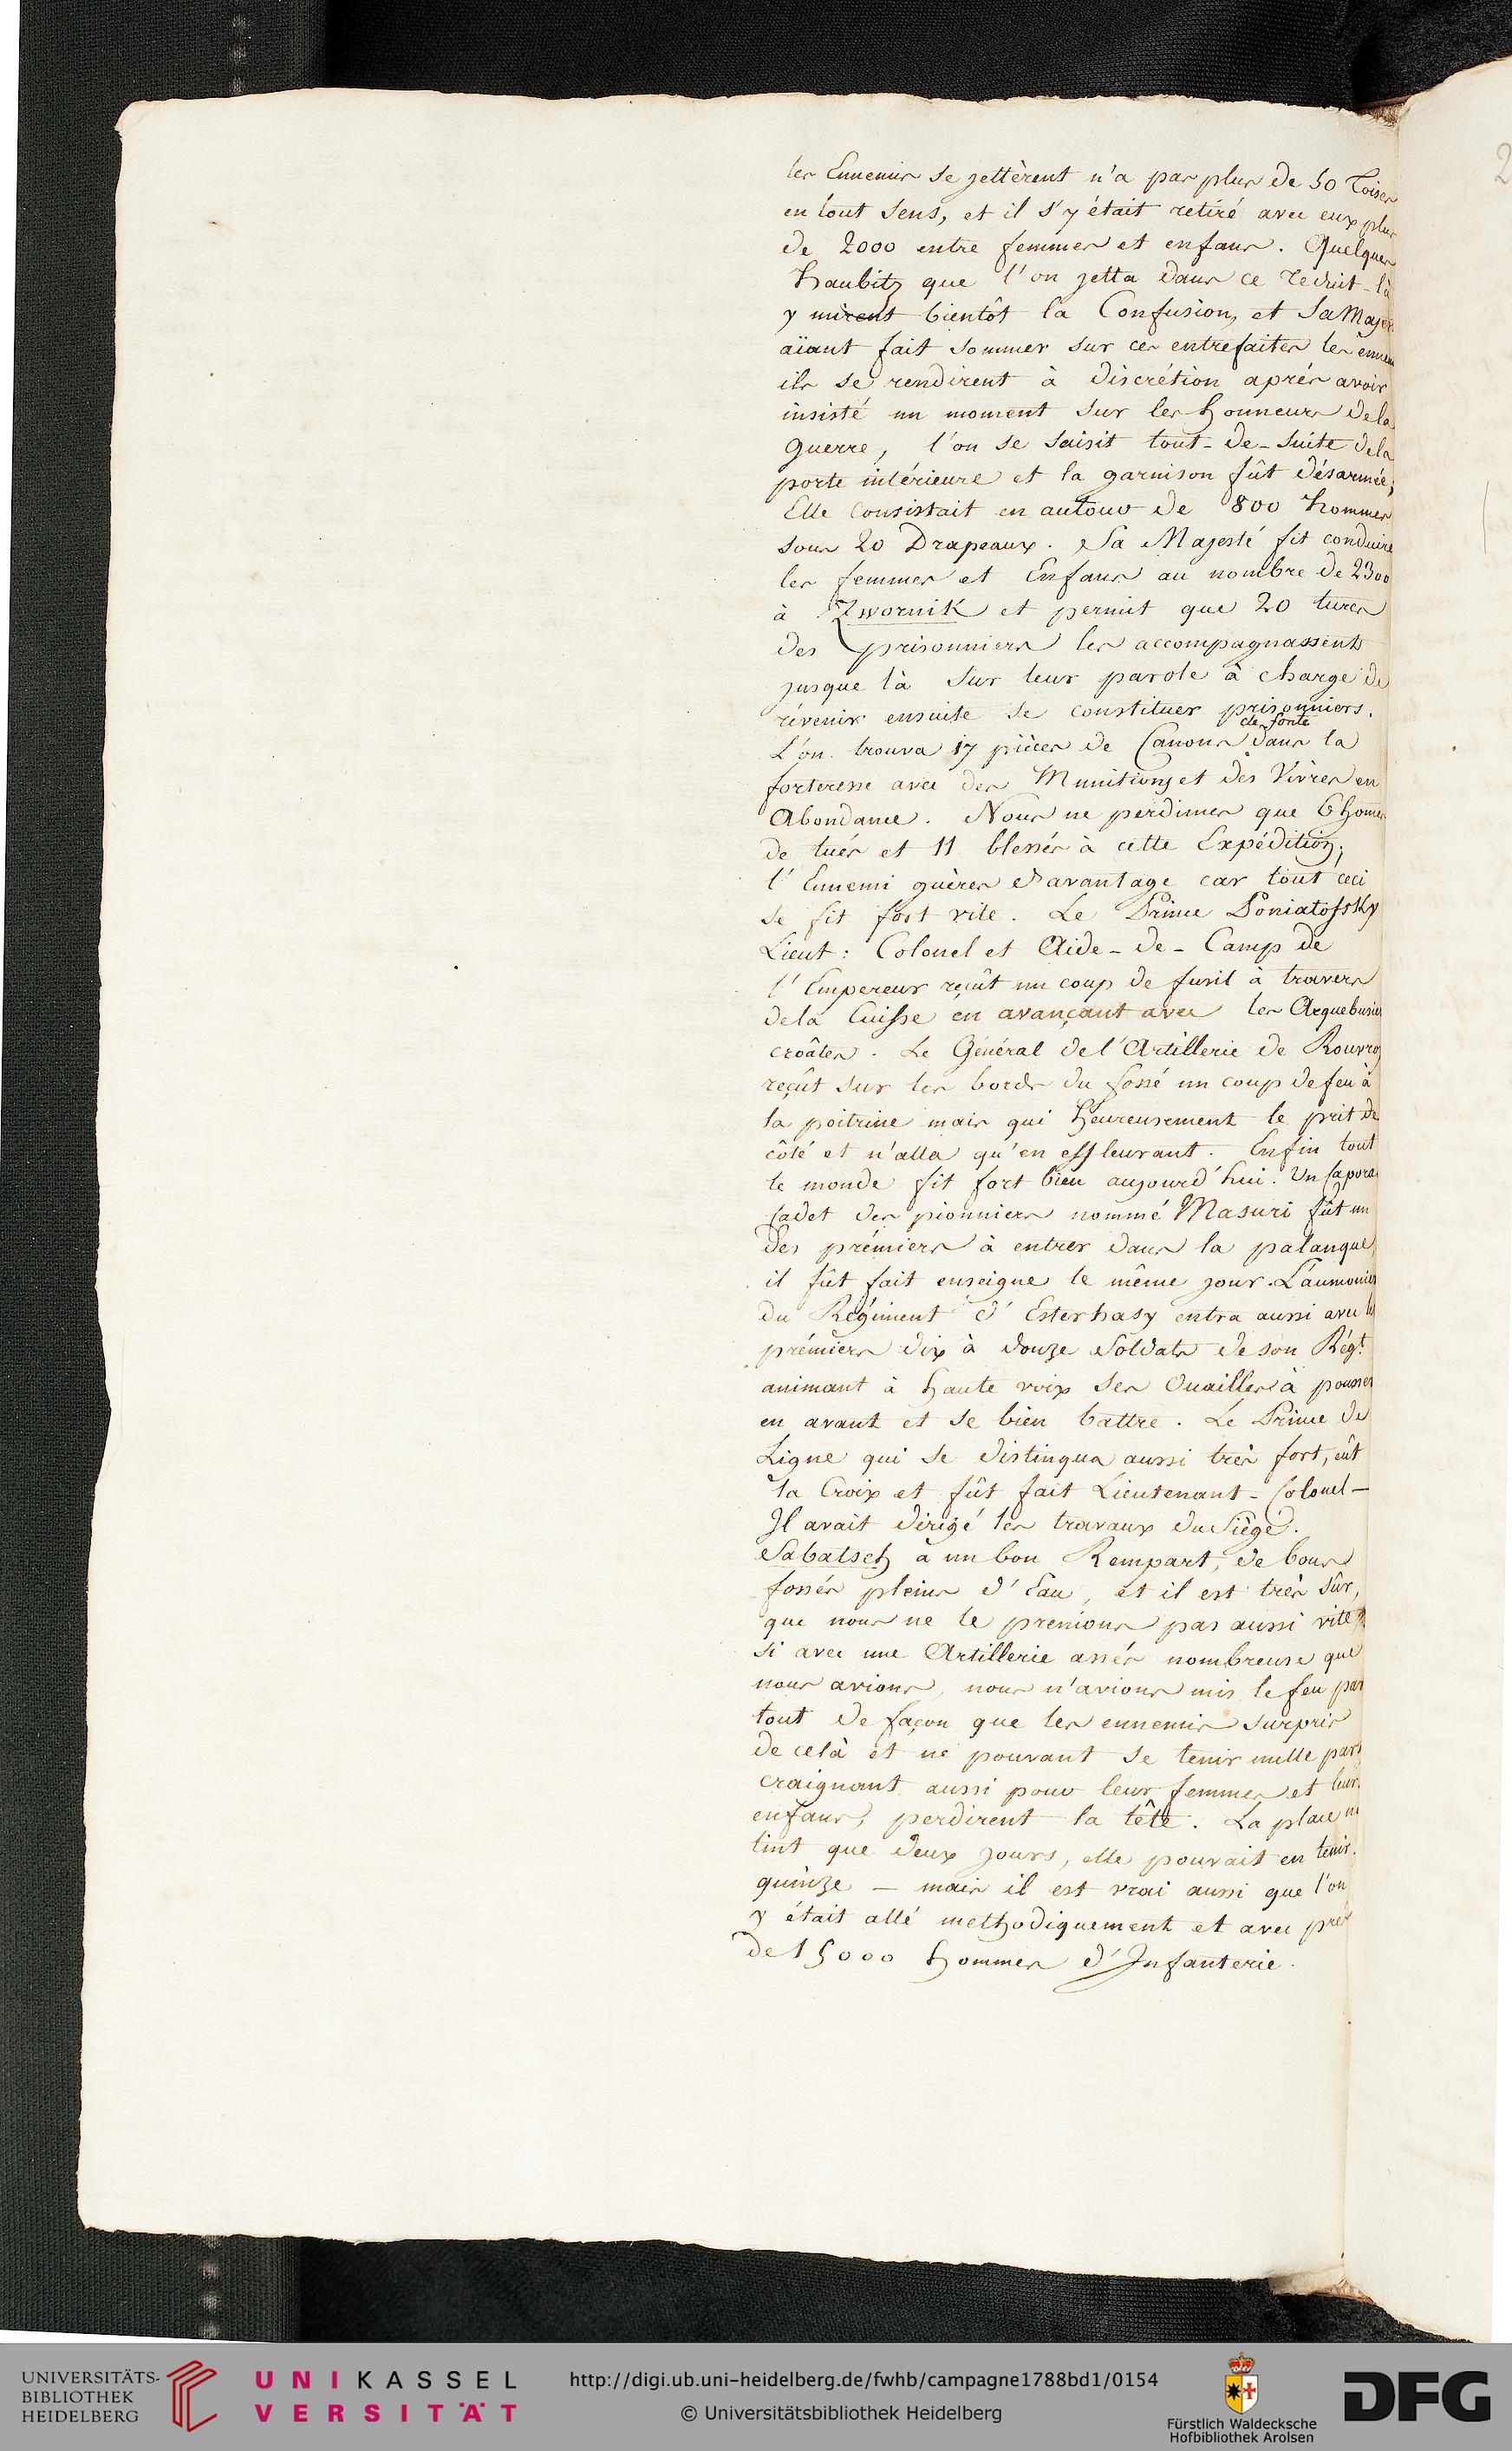 les Ennemis se jettèrent n'a pas plus de 50 Toises
en tout sens, et il s'y était retiré avec eux plus
de 2000 entre femmes et enfans. Quelques
Haubitz que l'on jetta dans ce reduit-là
y mirent bientôt la Confusion, et Sa Majes
aïant fait sommer sur ces entrefaites les ennem
ils se rendirent à discrétion aprés avoir
insisté un moment sur les honneurs de la
guerre, l'on se saisit tout-de-suite de la
porte intérieure et la garnison fût désarmée;
Elle consistait en autour de 800 hommes
sous 20 Drapeaux. Sa Majesté fit conduire
les femmes et Enfans au nombre de 2300
à Zwornik et permit que 20 turcs
des prisonniers les accompagnassent
jusque là sur leur parole à charge de
révenir ensuite se constituer prisonniers.
de fonte
L'on trouva 17 pièces de Canons dans la
forteresse avec des Munitions et des Vivres en
Abondance. Nous ne perdimes que 6 homes
de tués et 11 blessés à cette Expédition;
l'Ennemi guères d'avantage car tout ceci
se fit fort vite. Le Prince Poniatofsky
Lieut: Colonel et Aide-de-Camp de
l'Empereur reçût un coup de fusil à travers
de la Cuisse en avançant avec les Arquebusiers
croâtes. Le Général de l'Artillerie de Rouvroy
reçût sur les bords du fossé un coup de feu à
la poitrine mais qui heureusement le prit de
côté et n'alla qu'en effleurant. Enfin tout
le monde fit fort bien aujourd'hui. Un Caporal
Cadet des pionniers nommé Masuri fût un
des prémiers à entrer dans la palanque
il fût fait enseigne le même jour. L'aumonier
du Régiment d'Esterhasy entra aussi avec les
prémiers dix à douze Soldats de son Régt.
animant à haute voix ses Ouailles à pousser
en avant et se bien battre. Le Prince de
Ligne qui se distingua aussi très fort, eût
la Croix et fût fait Lieutenant-Colonel-
Il avait dirigé les travaux du Siège.
Sabatsch a un bon Rempart, de bons
fossés pleins d'Eau, et il est très sûr,
que nous ne le prenions pas aussi vite,
si avec une Artillerie assés nombreuse que
nous avions, nous n'avions mis le feu par
tout de façon que les ennemis surpris
de celà et ne pouvant se tenir nulle part
craignant aussi pour leur femmes et leurs
enfans, perdirent la tête. La place ne
tint que deux jours, elle pouvait en tenir
quinze — mais il est vrai aussi que l'on
y était allé methodiquement et avec près
de 15000 hommes d'Infanterie.
UNIVERSITÄTS-
BIBLIOTHEK
HEIDELBERG
UNIKASSEL
VERSITÄT
http://digi.ub.uni-heidelberg.de/fwhb/campagne1788bd1/0154
© Universitätsbibliothek Heidelberg
Fürstlich Waldecksche
Hofbibliothek Arolsen
DFG